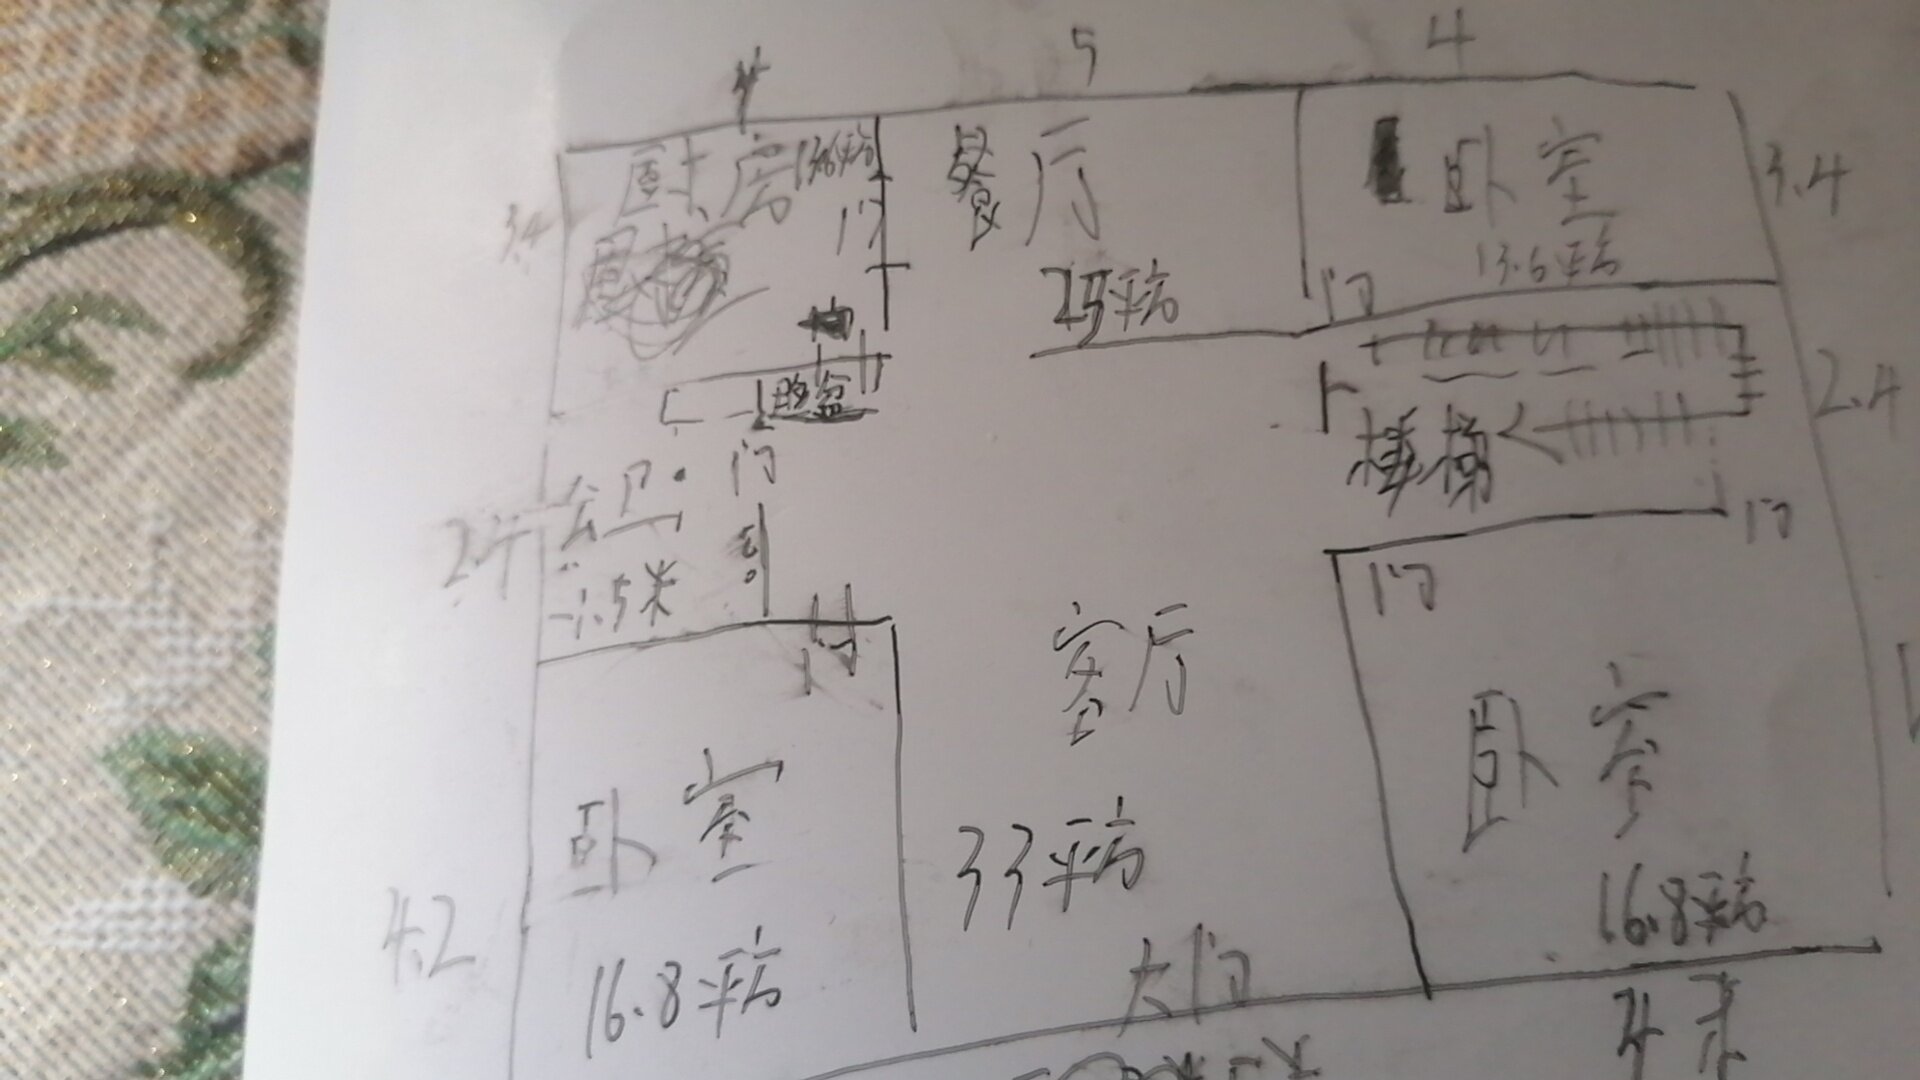 4
5
4
厨房 13.6平方
餐厅
卧室
3.4
3.4
门
13.6平方
25平方
门
脸盆
2.4
楼梯
公卫
门
2.4
1.5米
门
门
门
客厅
卧室
卧室
33平方
16.8平方
4.2
16.8平方
大门
4米